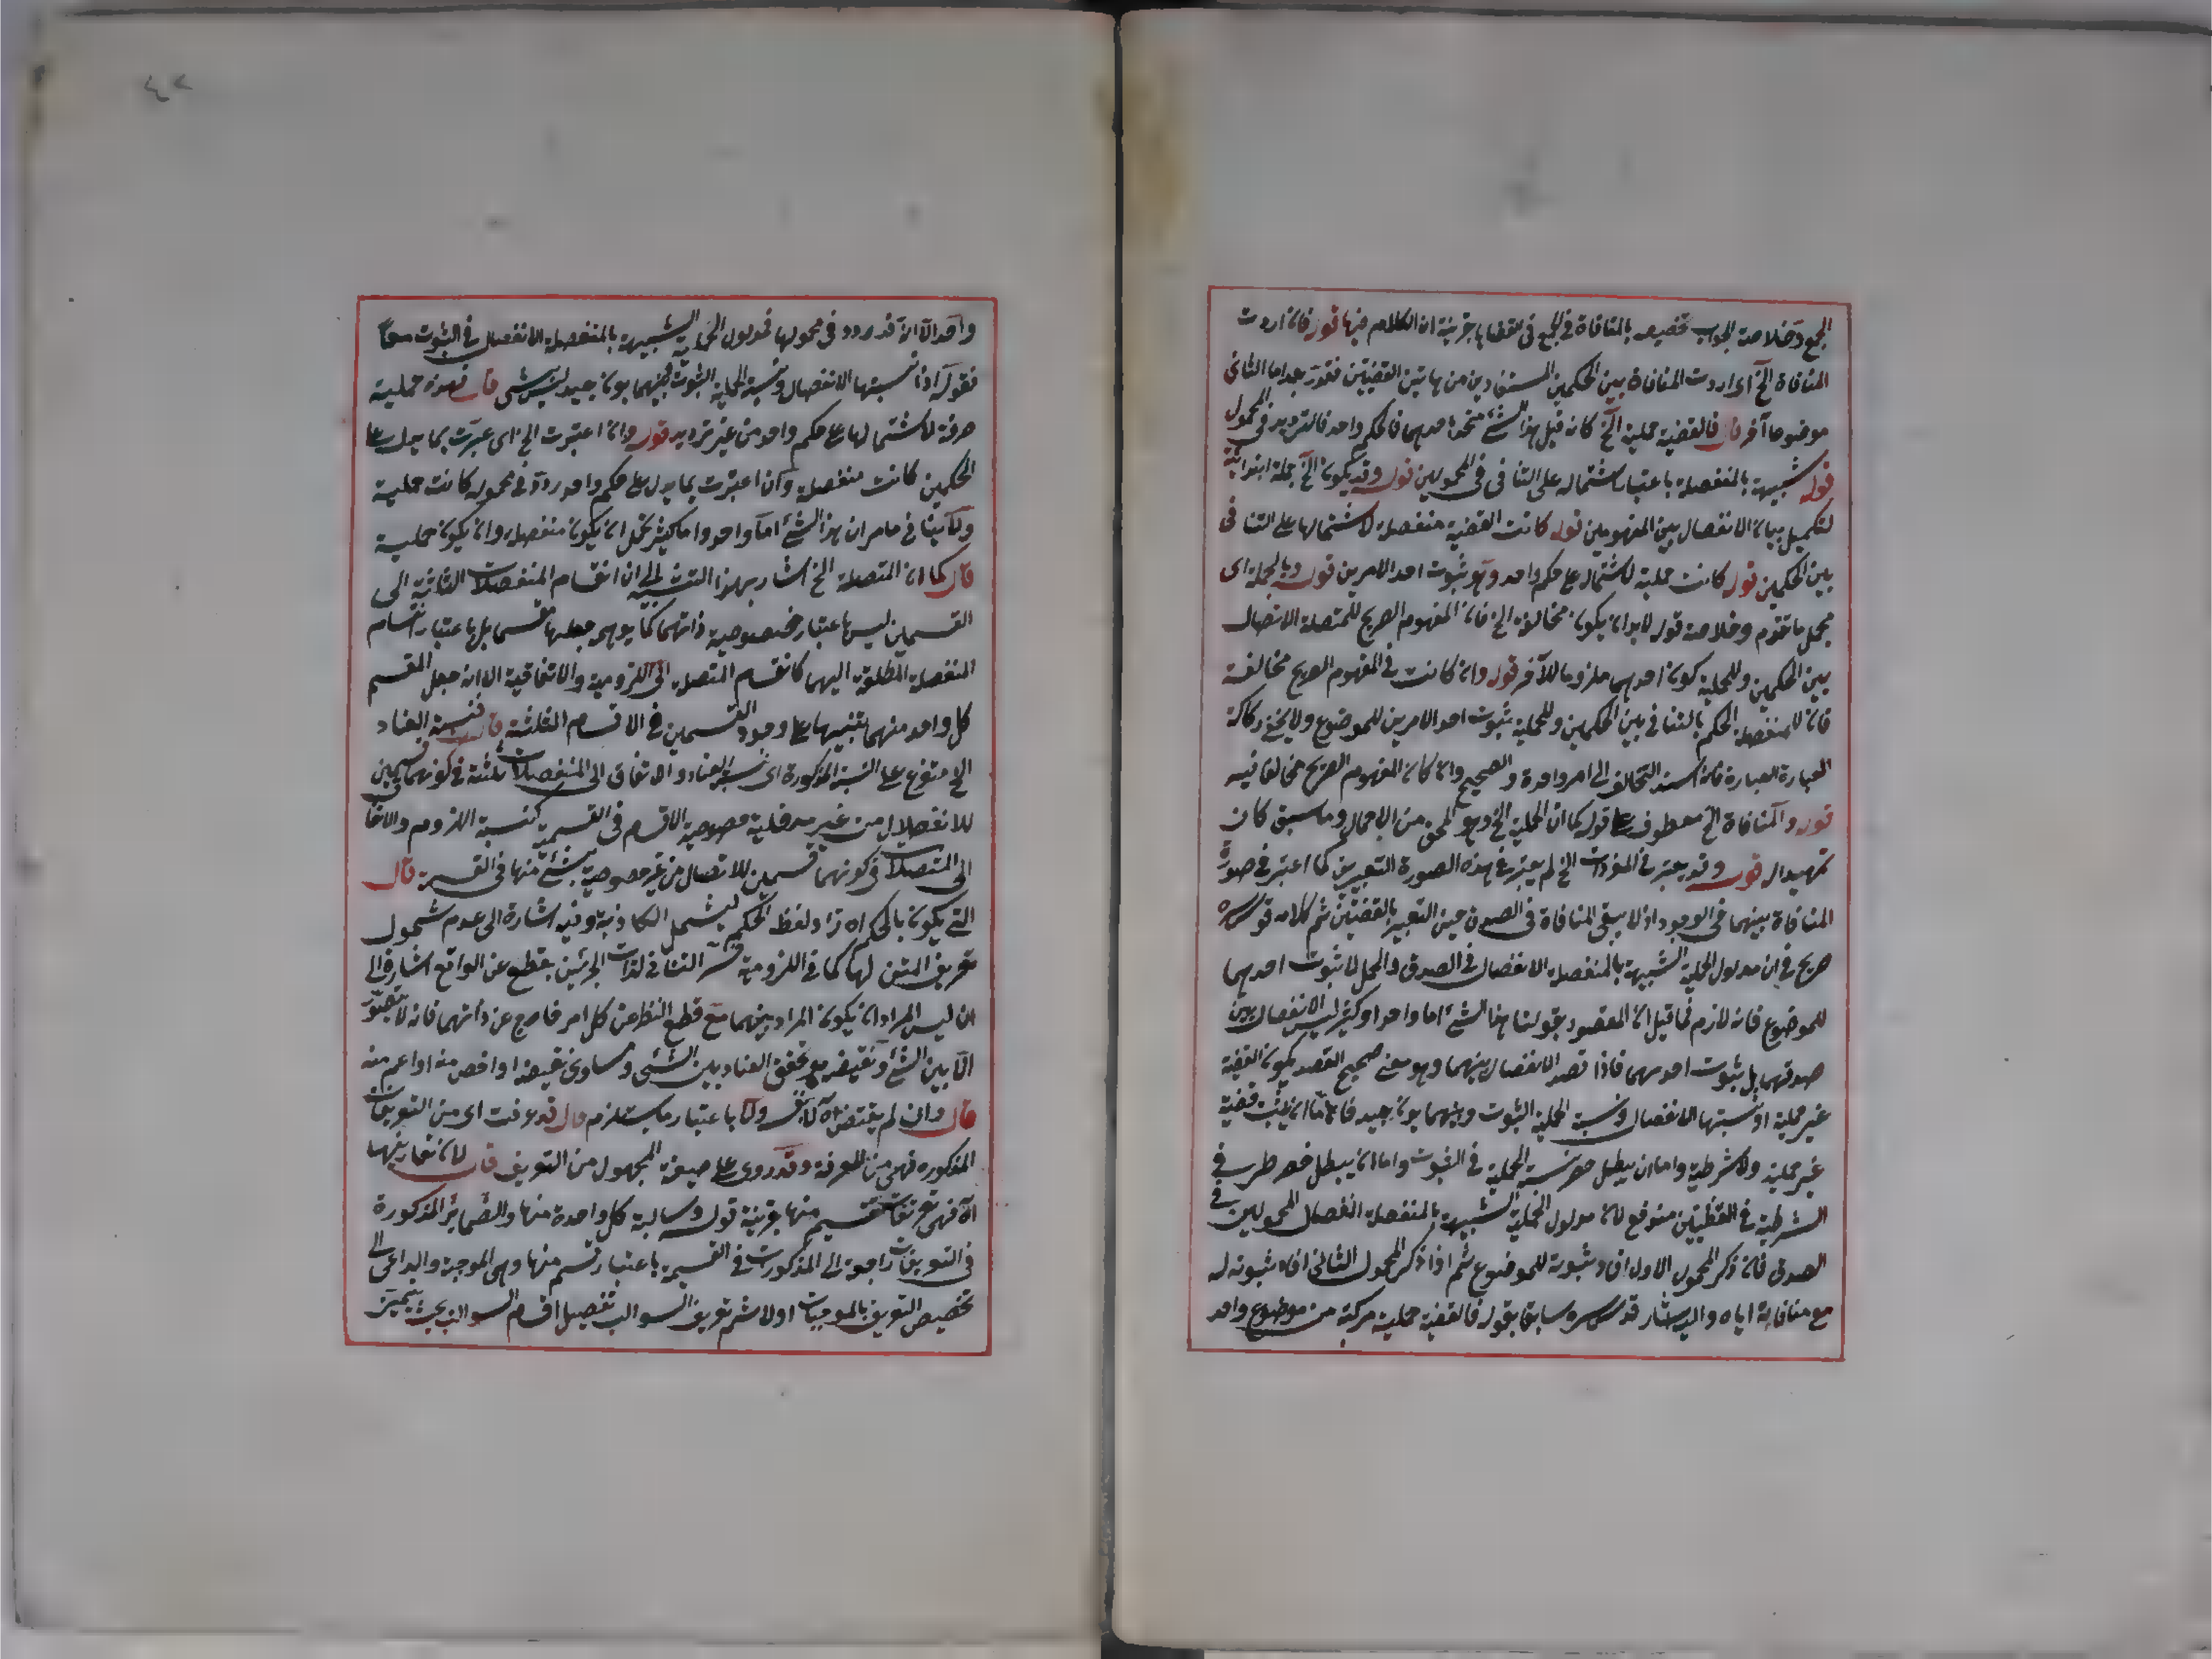 الجمع وخلاصة الجواب تخصيصه بالمنافاة في الجمع في القضايا بقرينة ان الكلام فيها قوله فان اردت
المنافاة الخ اى اردت المنافاة بين الحكمين المستفادين من هاتين القضيتين فتقدر بعد اما الثانى
موضوعا آخر قال فالقضية حملية الخ كانه قيل هذا الشئ متحد احدهما فالحكم واحد فالترديد فى المحمول
قوله شبيهة بالمنفصلة باعتبار اشتماله على التنافى فى المحمولين قوله وقد يكون الخ جملة ابتدائية
لتكميل بيان الانفصال بين المفهومين قوله كانت القضية منفصلة لاشتمالها على التنافى
بين الحكمين قوله كانت حملية لاشتماله على حكم واحد وهو ثبوت احد الامرين قوله وبالجملة اى
مجمل ما تقدم وخلاصة قوله لابد ان يكون مخالفة الخ فان المفهوم الصريح للمتصلة الاتصال
بين الحكمين وللحملية كون احدهما ملزوما للآخر قوله وان كانت فى المفهوم الصريح مخالفة
فان للمنفصلة الحكم بالتنافى بين الحكمين وللحملية ثبوت احد الامرين للموضوع ولا يخفى ركاكة
العبارة العبارة فانه اسند التخالف الى امر واحدة والصحيح وان كان المفهوم الصريح مخالفا فيه
قوله والمنافاة الخ معطوف على قوله كما ان الحملية الخ وهو المحق من الاجمال وما سبق كان
تمهيدا له قوله وقد يعتبر فى المفردات الخ لم يعتبر فى هذه الصورة التعبيرين كما اعتبر فى صورة
المنافاة بينهما فى الوجود اذ لا يبقى المنافاة فى الصدق حين التعبير بالقضيتين ثم كلامه قدس سره
صريح فى ان مدلول الحملية الشبيهة بالمنفصلة الانفصال فى الصدق والحمل لا ثبوت احدهما
للموضوع فانه لازم فما قيل ان المقصود بقولنا هذا الشئ اما واحد او كثير ليس الانفصال بين
صدقهما بل ثبوت احدهما فاذا قصد الانفصال بينهما وهو معنى صحيح القصد يكون القضية
غير حملية اذ نسبتها الانفصال ونسبة الحملية الثبوت وبينهما بون بعيد فاما ان يثبت قضية
غير حملية ولا شرطية واما ان يبطل حصر نسبة الحملية فى الثبوت واما ان يبطل حصر طرفى
الشرطية فى القضيتين مندفع لان مدلول الحملية الشبيهة بالمنفصلة انفصال المحمولين فى
الصدق فان ذكر المحمول الاول افاد ثبوته للموضوع ثم اذا ذكر المحمول الثانى افاد ثبوته له
مع منافاته اياه واليه اشار قدس سره سابقا بقوله فالقضية حملية مركبة من موضوع واحد
٤٢
واحد الا انه قد ردد فى محمولها فمدلول الحملية الشبيهة بالمنفصلة الانفصال فى الثبوت معا
فقوله اذ نسبتها الانفصال ونسبة الحملية الثبوت وبينهما بون بعيد ليس بشى قال فهذه حملية
صرفة لاشتمالها على حكم واحد من غير ترديد قوله وان اعتبرت الخ اى عبرت بما يدل على
الحكمين كانت منفصلة وان اعتبرت بما يدل على حكم واحد ردد فى محموله كانت حملية
ولا ينافى ما مر ان هذا الشئ اما واحد واما كثير يحتمل ان يكون منفصلة وان يكون حملية
قال كما ان المتصلة الخ اشار بهذا التشبيه الى ان انقسام المنفصلات الثلثة الى
القسمين ليس باعتبار خصوصية ذاتهما كما يوهم جعلها مقسما بل باعتبار انقسام
المنفصلة المطلقة اليهما كانقسام المتصلة الى اللزومية والاتفاقية الا انه جعل المقسم
كل واحد منهما تنبيها على وجود القسمين فى الاقسام الثلثة قال فنسبة العناد
الخ متفرع على النسبة المذكورة اى نسبة العناد والاتفاق الى المنفصلات الثلثة فى كونهما قسمين
للانفصال من غير مدخلية خصوصية الاقسام فى القسمية كنسبة اللزوم والاتفا
الى المتصلات فى كونهما قسمين للاتصال من غير خصوصية شئ منها فى القسمية قال
التى يكون بالحكم اه زاد لفظ الحكم ليشمل الكاذبة وفيه اشارة الى عدم شمول
تعريف المتن لها كما فى اللزومية فسر التنافى لذات الجزئين بقطع عن الواقع اشارة الى
ان ليس المراد ان يكون المراد بينهما مع قطع النظر عن كل امر خارج عن ذاتهما فانه لا يتصور
الا بين الشئ ونقيضه مع تحقق العناد بين الشئ ومساوى نقيضه او اخص منه او اعم منه
قال وان لم يقتض اه لا بق ولا باعتبار ما يستلزم قال قد عرفت اى من التعريفات
المذكوره فهى من المعرفة وقد روى على صيغة المجهول من التعريف قال لان تعاريفها
اه فهى تعريفات قسم منها بقرينة قوله وسالبة كل واحدة منها والضماير المذكورة
فى التعريفات راجعة الى المذكورات فى القسمية باعتبار قسم منها وهى الموجبة والداعى الى
تخصيص التعريف بالموجبات اولا ثم تعريف السوالب تفصيل اقسام السوالب بحيث يتميز